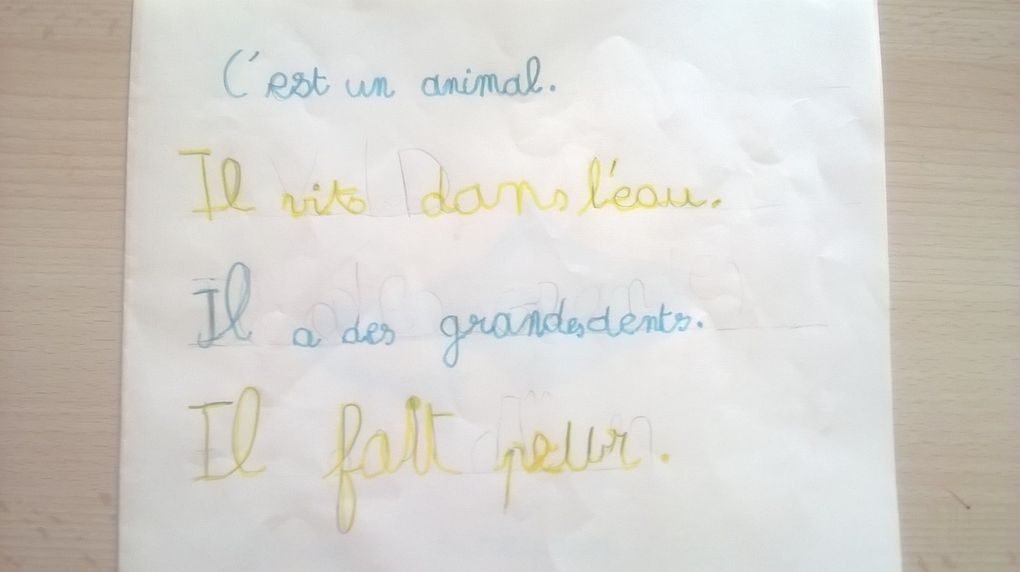 C'est un animal.
Il vits dans l'eau.
Il a des grandes dents.
Il fait peur.